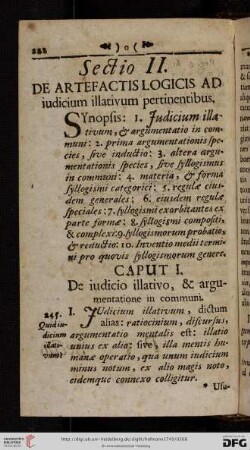 222
)o(
Sectio II.
DE ARTEFACTIS LOGICIS AD
iudicium illativum pertinentibus.
SYnopsis: 1. Iudicium illa-
tivum, & argumentatio in com-
muni: 2. prima argumentationis spe-
cies, sive inductio: 3. altera argu-
mentationis species, sive syllogismus
in communi: 4. materia, & forma
syllogismi categorici: 5. regulæ eius-
dem generales: 6. eiusdem regulæ
speciales: 7. syllogismi exorbitantes ex
parte formæ: 8. syllogismi compositi,
& complexi: 9. syllogismorum probatio,
& reductio: 10. Inventio medii termi-
ni pro quovis syllogismorum genere.
CAPUT I.
De iudicio illativo, & argu-
mentatione in communi.
245.
Quid iu-
dicium
illati-
vum?
I. IUdicium illativum, dictum
alias: ratiocinium, discursus,
argumentatio mentalis est: illatio
unius ex alio; sive, illa mentis hu-
manæ operatio, qua unum iudicium
minus notum, ex alio magis noto,
eidemque connexo colligitur.
* Usu-
DFG